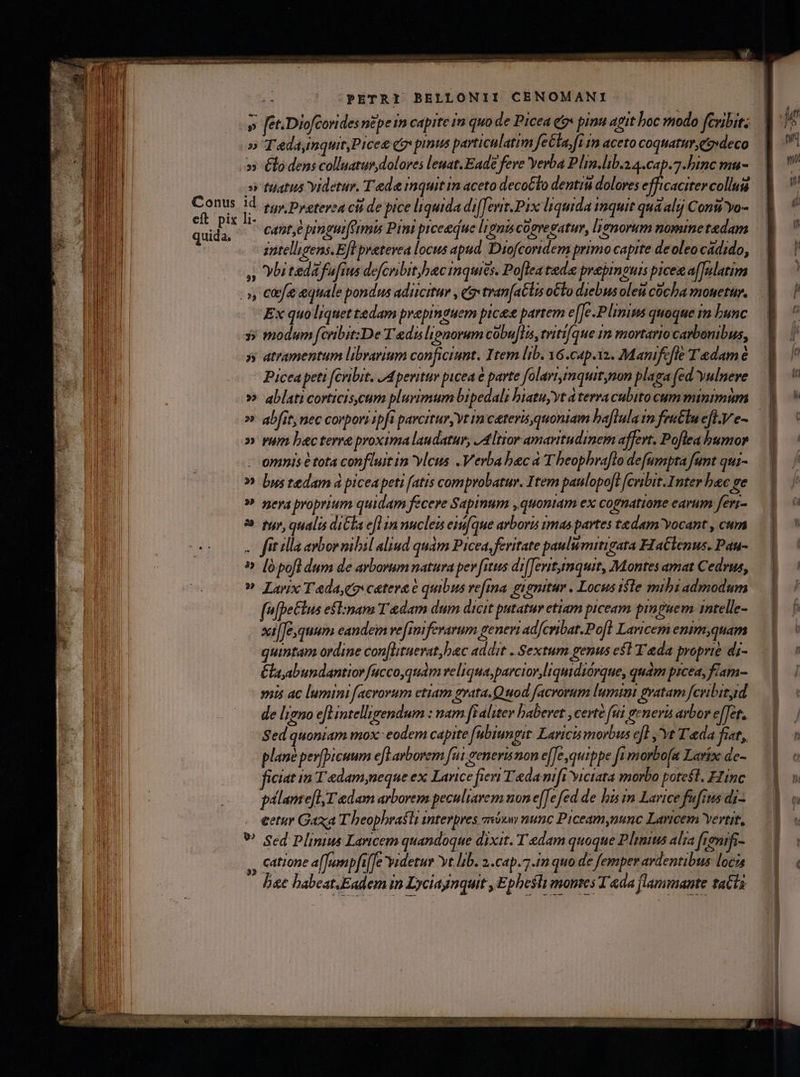 PETRI BELLONII CENOMANI
» set. Dioscorides nẽpe in capite in quo de Picea & pinu agit hoc modo scribit:
» Tæda, inquit, Piceæ & pinus particulatim secta, si in aceto coquatur, & deco
» cto dens colluatur, dolores leuat. Eadẽ fere verba Plin. lib. 24. cap. 7. hinc mu-
» tuatus videtur. Tædæ inquit in aceto decocto dentiũ dolores efficaciter colluũ
Conus id tur. Præterea cũ de pice liquida disserit. Pix liquida inquit quã alij Conũ vo-
est pix li- cant, è pinguissimis Pini piceæque lignis cõgregatur, lignorum nomine tædam
quida. intelligens. Est præterea locus apud Dioscoridem primo capite de oleo cadido,
,, vbi tædã fusius describit, hæc inquiẽs. Postea tædæ præpinguis piceæ assulatim
,, cæsæ æquale pondus adiicitur, & transactis octo diebus oleũ cõcha mouetur.
Ex quo liquet tædam præpinguem piceæ partem esse. Plinius quoque in hunc
» modum scribit: De Tædis lignorum cõbustis, tritisque in mortario carbonibus,
» atramentum librarium conficiunt. Item lib. 16. cap. 12. Manifeste Tædam è
Picea peti scribit. Aperitur picea è parte solari, inquit, non plaga sed vulnere
» ablati corticis, cum plurimum bipedali hiatu, vt à terra cubito cum minimum
» absit, nec corpori ipsi parcitur, vt in cæteris, quoniam hastula in fructu est. Ve-
» rum hæc terræ proxima laudatur, Altior amaritudinem affert. Postea humor
omnis è tota confluit in vlcus. Verba hæc à Theophrasto desumpta sunt qui-
» bus tædam à picea peti satis comprobatur. Item paulopost scribit. Inter hæc ge
» nera proprium quidam fecere Sapinum, quoniam ex cognatione earum seri-
» tur, qualis dicta est in nucleis eiusque arboris imas partes tædam vocant, cum
. sit illa arbor nihil aliud quàm Picea, feritate paulũ mitigata Hactenus. Pau-
» lò post dum de arborum natura per situs disserit, inquit, Montes amat Cedrus,
» Larix Tæda, & cæteræ è quibus resina gignitur. Locus iste mihi admodum
suspectus est: nam Tædam dum dicit putatur etiam piceam pinguem intelle-
xisse, quum eandem resiniferarum generi adscribat. Post Laricem enim, quam
quintam ordine constituerat, hæc addit. Sextum genus est Tæda propriè di-
cta, abundantior succo, quàm reliqua, parcior, liquidiórque, quàm picea, flam-
mis ac lumini sacrorum etiam grata. Quod sacrorum lumini gratam scribit, id
de ligno est intelligendum: nam si aliter haberet, certè sui generis arbor esset.
Sed quoniam mox eodem capite subiungit Laricis morbus est, vt Tæda fiat,
planè perspicuum est arborem sui generis non esse, quippe si morbosa Larix de-
ficiat in Tædam, neque ex Larice fieri Tæda nisi viciata morbo potest. Hinc
pàlam est, Tædam arborem peculiarem non esse sed de his in Larice fusius di-
cetur Gaza Theophrasti interpres πεύκην nunc Piceam, nunc Laricem vertit,
» Sed Plinius Laricem quandoque dixit. Tædam quoque Plinius alia signifi-
,, catione assumpsisse videtur vt lib. 2. cap. 7. in quo de semper ardentibus locis
hæc habeat, Eadem in Lycia, inquit, Ephesti montes Tæda flammante tacti